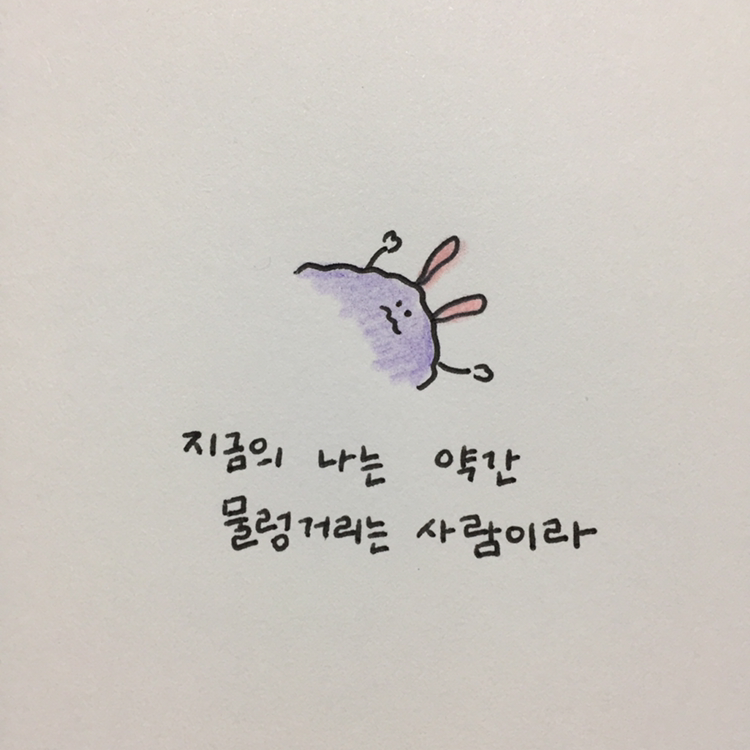 지금의 나는 약간
물렁거리는 사람이라